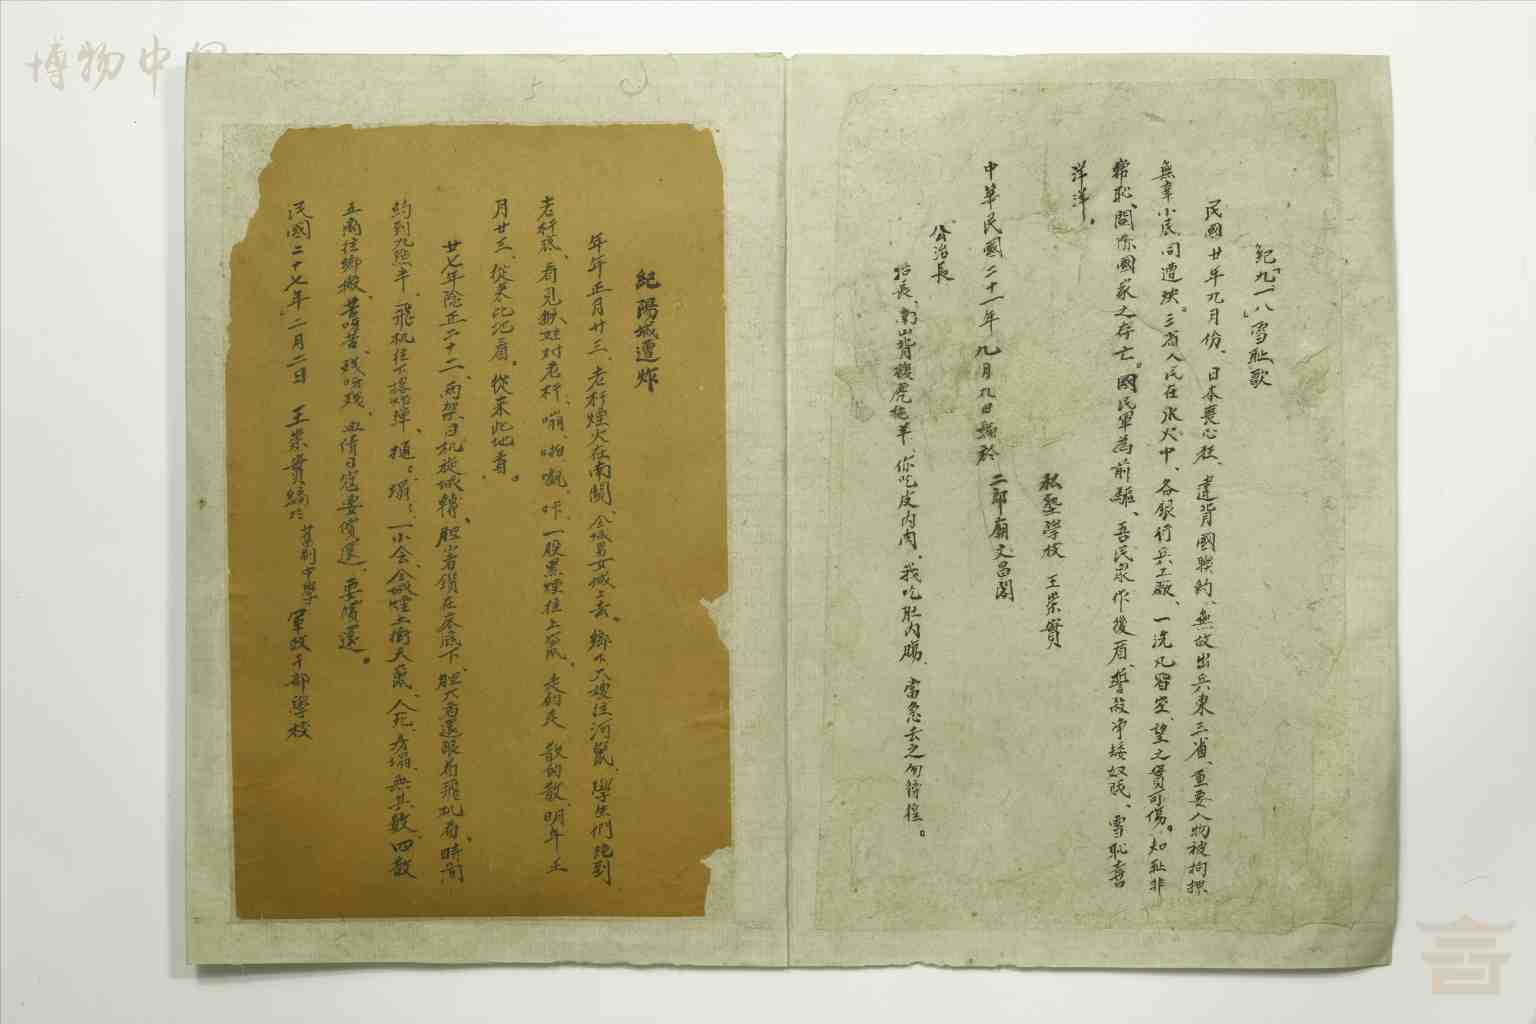 博物中国
紀「九一八」雪耻歌
民國廿年九月份、日本喪心狂、違背國聯約、無故出兵東三省、重要人物被拘押
無辜小民同遭殃。三省人民在水火中、各銀行兵工廠、一洗凡皆空、望之實可傷。知耻非
常恥、問你國家之存亡。國民軍為前驅、吾民衆作後盾、誓殺沖矮奴賊、雪恥喜
洋洋。
私塾學校 王崇實
中華民國二十一年九月九日編於
二郎廟文昌閣
公治長
治長、南山背後虎拖羊、你吃皮内肉、我吃肚内腸、當急去之勿徬徨。
紀陽城遭炸
年年正月廿三、老杆煙火在南關、全城男女城上去。鄉下大嫂往河竄、學生們跑到
老杆底、看見猴娃对老杆、嘣、啪 咔、一股黑煙往上竄、走的走 散的散、明年正
月廿三、從來此地看。從來此地看。
廿七年陰正二十二、両架日机旋城轉、胆小者鑽在床底下、胆大者還眼看飛机看、時間
約到九點半、飛机往下擲炸彈、 一小会、全城煙土衝天竄、人死、房塌、無其數、四散
五离往鄉搬、苦呀苦、残呀残、血債日寇要償還、要償還。
民國二十七年二月二日 王崇實編於 中學 軍政干部學校